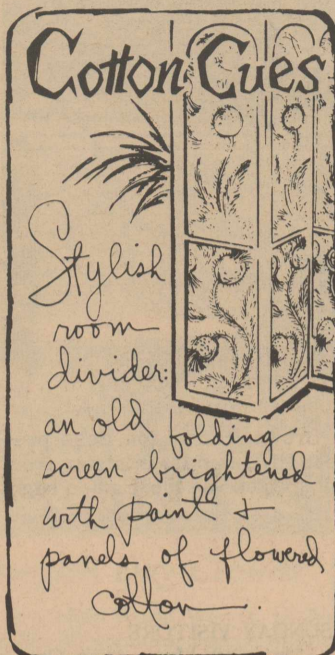 Cotton Cues
Stylish
room
divider:
an old folding
screen brightened
with paint +
panels of flowered
cotton.